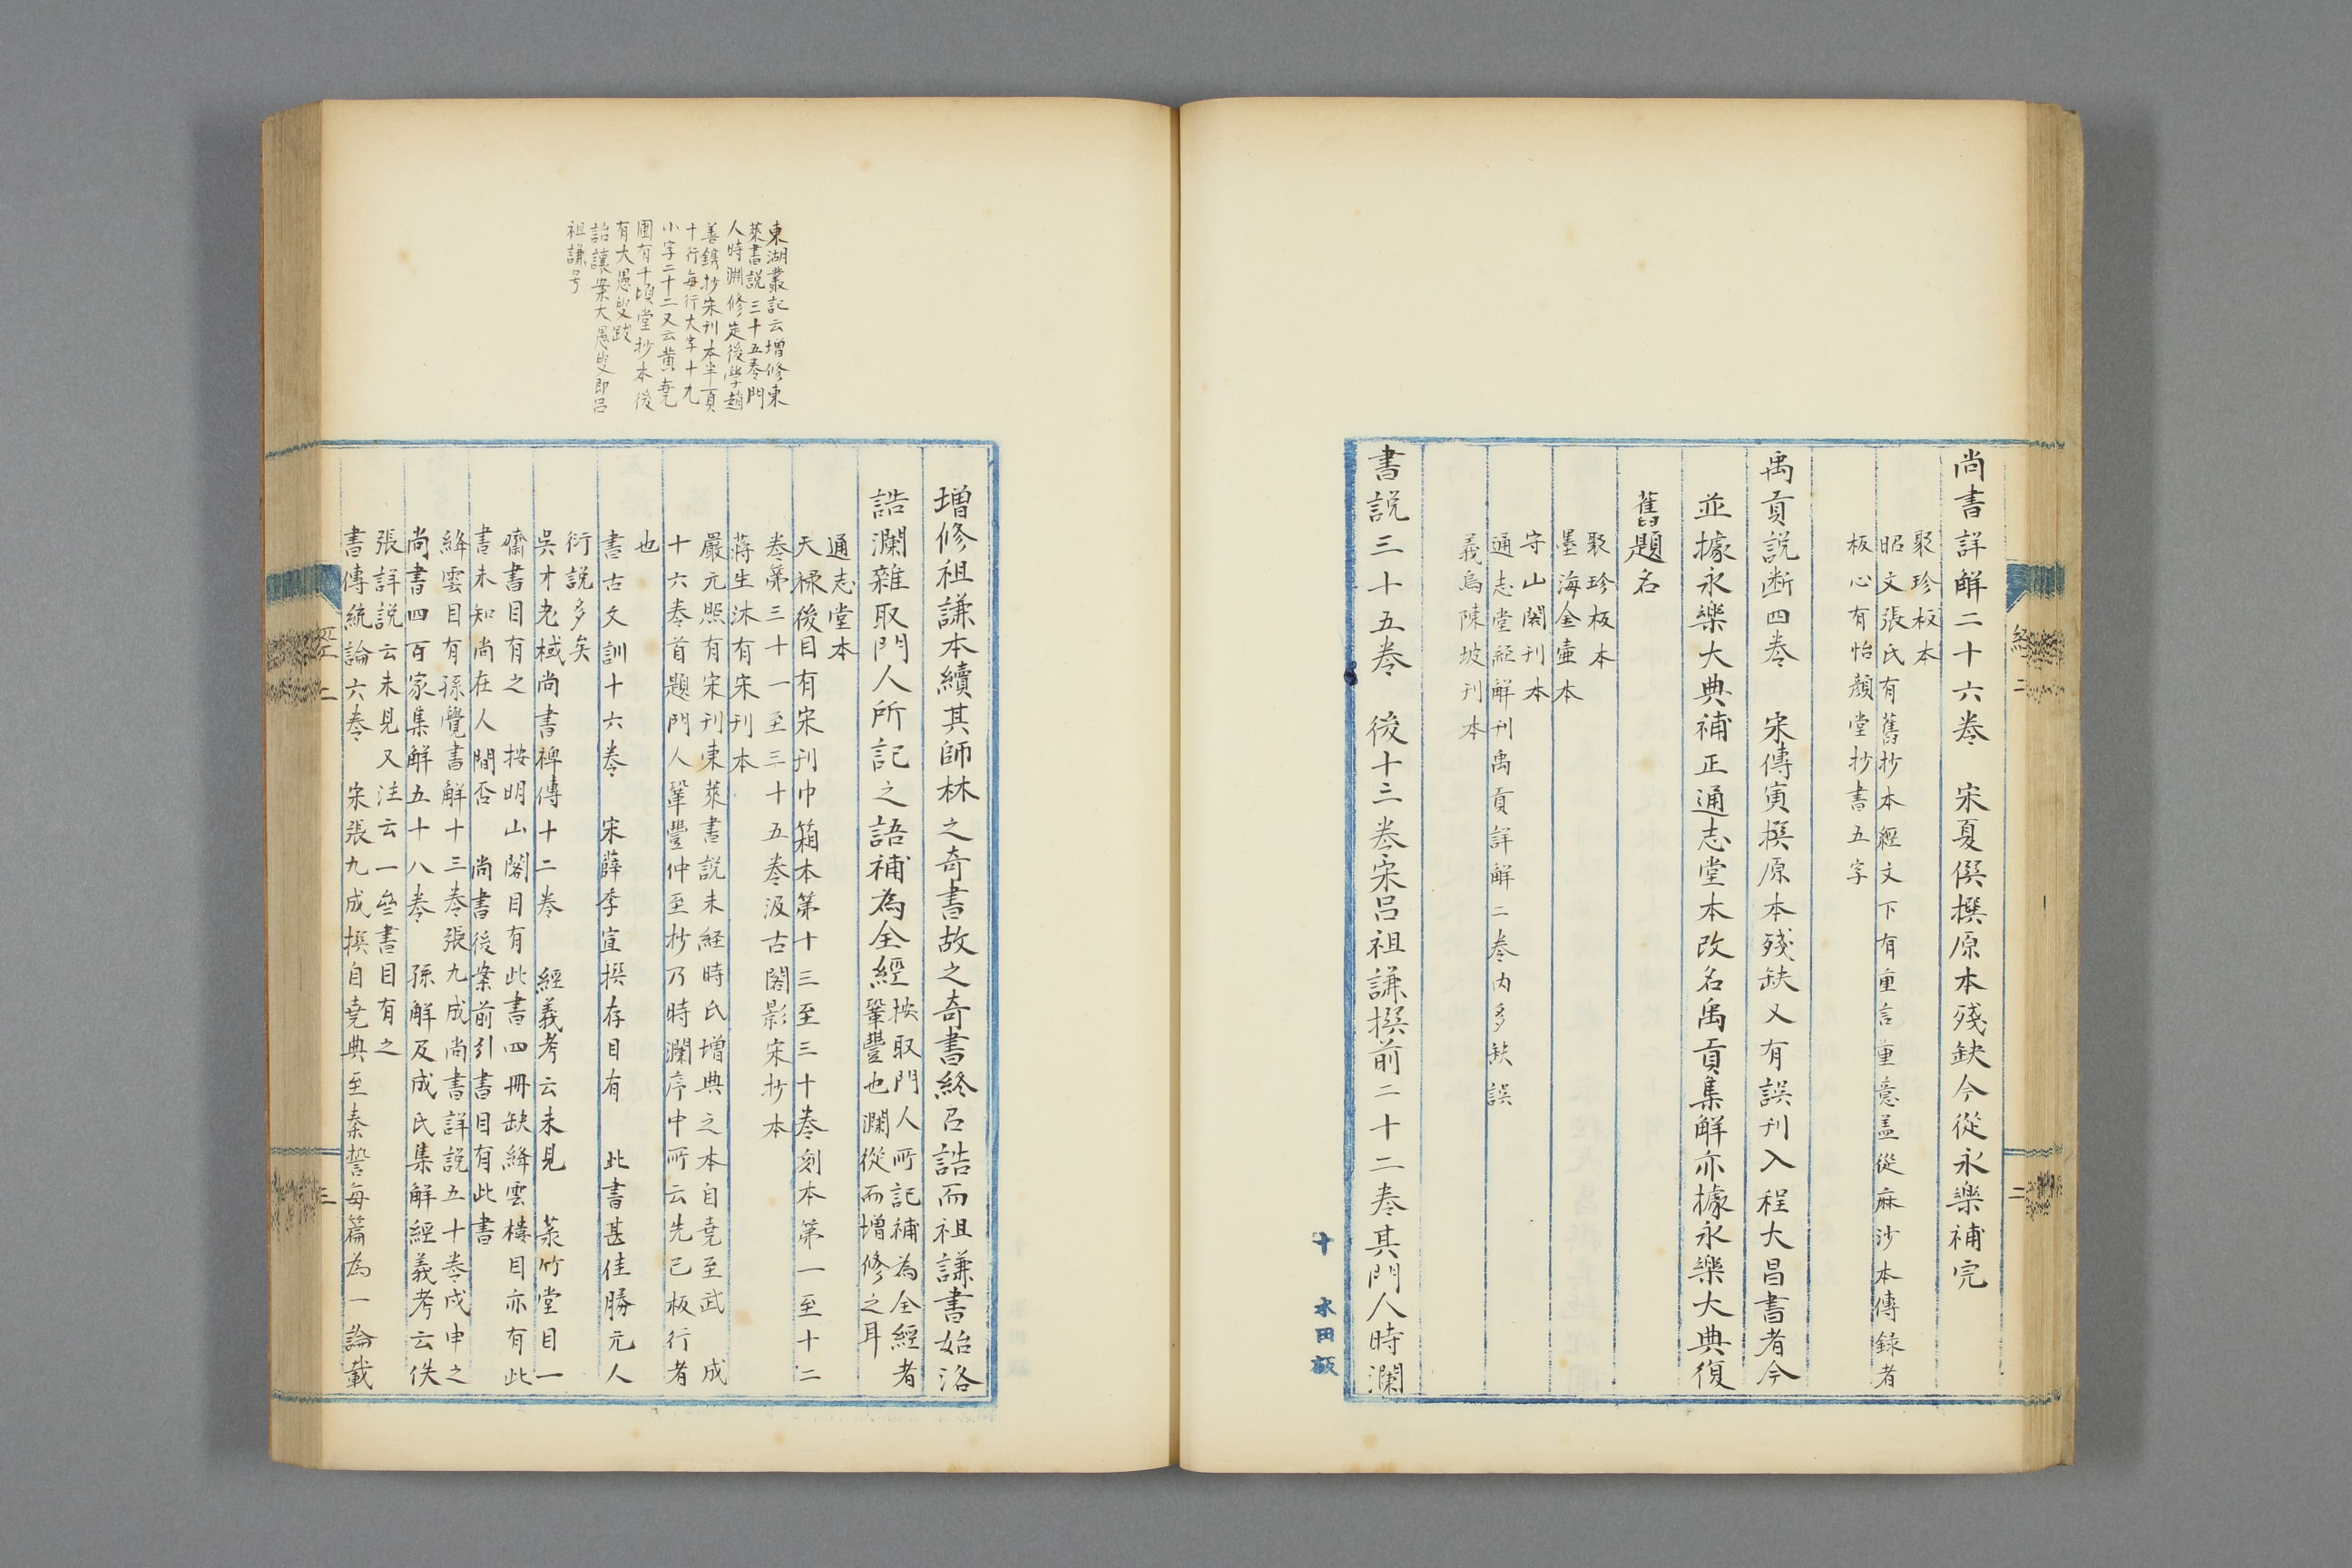 尚書詳解二十六卷　宋夏僎撰原本殘缺今從永樂補完
聚珍板本
昭文張氏有舊抄本經文下有重言重意盖從麻沙本傳録者
板心有怡顔堂抄書五字
禹貢説断四卷　宋傅寅撰原本殘缺又有誤刊入程大昌書者今
並據永樂大典補正通志堂本改名禹貢集解亦據永樂大典復
舊題名
聚珍板本
墨海金壷本
守山閣刊本
通志堂經解刊禹貢詳解二卷内多缺誤
義烏陳坡刊本
書説三十五卷　後十三卷宋呂祖謙撰前二十二卷其門人時瀾
十　水田版
經二
二
增修祖謙本續其師林之奇書故之奇書終召誥而祖謙書始洛
誥瀾雜取門人所記之語補為全經
按取門人所記補為全經者
鞏豐也瀾從而增修之耳
通志堂本
天禄後目有宋刊巾箱本第十三至三十卷刻本第一至十二
卷第三十一至三十五卷汲古閣影宋抄本
蔣生沐有宋刊本
嚴元照有宋刊東萊書説未経時氏增典之本自堯至武　成
十六卷首題門人鞏豐仲至抄乃時瀾序中所云先已板行者
也
書古文訓十六卷　宋薛季宣撰存目有　此書甚佳勝元人
衍説多矣
吳才老棫尚書裨傳十二卷　經義考云未見　菉竹堂目一
齋書目有之　按明山閣目有此書四冊缺絳雲樓目亦有此
書未知尚在人間否　尚書後案前引書目有此書
絳雲目有孫覺書解十三卷張九成尚書詳説五十卷成申之
尚書四百家集解五十八卷　孫解及成氏集解經義考云佚
張詳説云未見又注云一叁書目有之
書傳統論六卷　宋張九成撰自堯典至秦誓每篇為一論載
東湖叢記云增修東
萊書説三十五卷門
人時瀾修定後學趙
善鐫抄宋刊本半頁
十行每行大字十九
小字二十二又云黄堯
圃有千頃堂抄本後
有大愚叟跋
詒讓案大愚叟即呂
祖謙号
經二
三